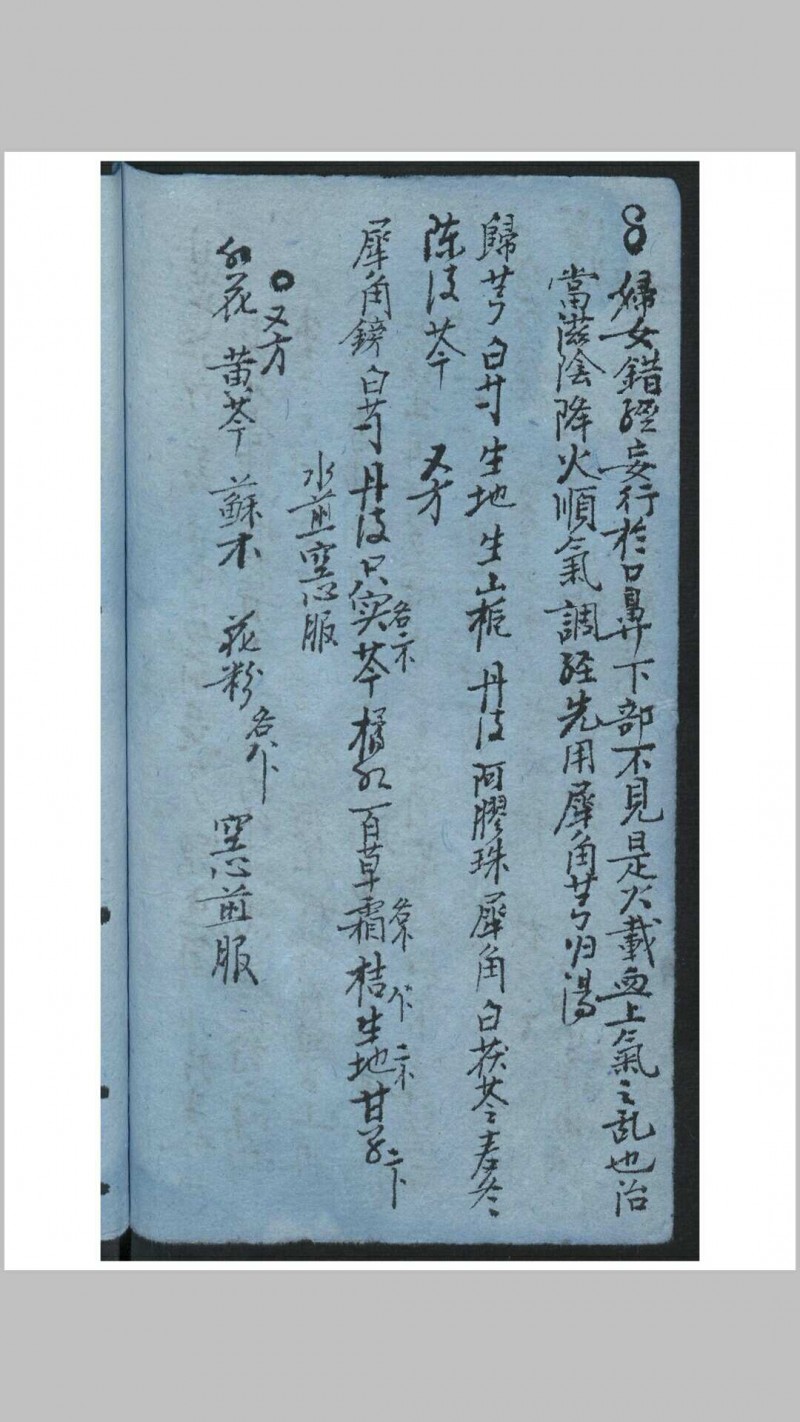 婦女錯經妄行於口鼻下部不見是火載血上氣之乱也治
當滋陰降火順氣調経先用犀角芎归湯
歸芎白芍生地生山梔丹皮阿膠珠犀角白茯苓麦冬
陈皮芩 又方
犀角鎊白芍丹皮只实各 芩橘红百草霜各 桔 生地 甘草
水煎空心服
又方
红花 黄芩 蘇木 花粉各 空心煎服